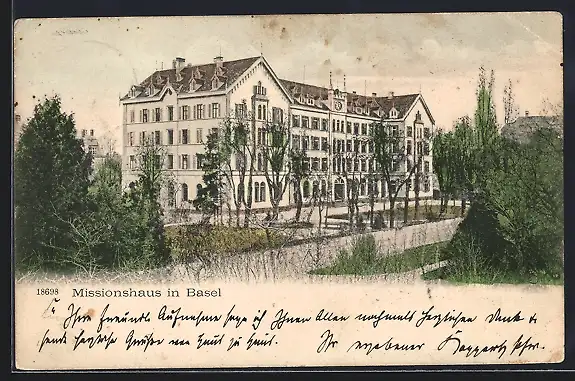 18698 Missionshaus in Basel
Ihre freundl. Aufnahme sage ich Ihnen Allen nochmals herzlichen Dank &
sende herzliche Grüße von Haus zu Haus.
Ihr ergebener